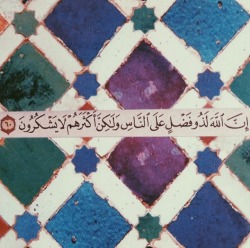 إِنَّ اللَّهَ لَذُو فَضْلٍ عَلَى النَّاسِ وَلَٰكِنَّ أَكْثَرَهُمْ لَا يَشْكُرُونَ ٦٠